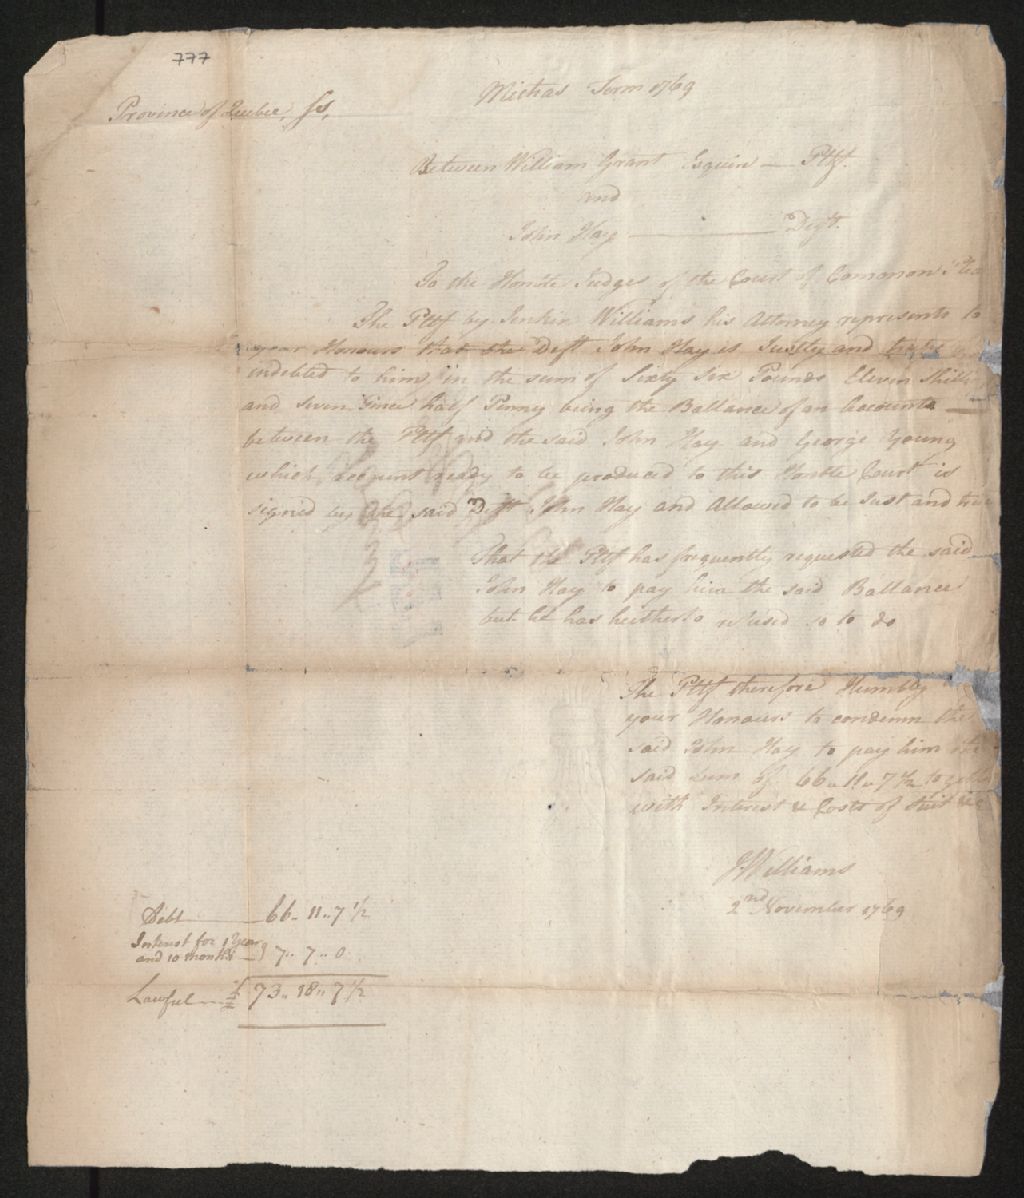 777
Michas Term 1769
Province of Quebec, ss,
Between William Grant Esquire — Pltff.
and
John Hay — Deft.
To the Honble Judges of the Court of Common Plea
The Pltff by Jenkin Williams his Attorney represents to
your Honours that the Deft John Hay is Justly and
indebted to him in the sum of Sixty Six Pounds Eleven Shill
and Seven Pence half Penny being the Ballance of an Account
between the Pltff and the said John Hay and George Young
which account ready to be produced to this Honble Court is
signed by the said Deft John Hay and Allowed to be Just and true
That the Pltff has frequently requested the said
John Hay to pay him the said Ballance
but he has hitherto refused so to do
The Pltff therefore Humbly
your Honours to condemn the
said John Hay to pay him the
said Sum of 66 " 11 " 7 1/2 together
with Interest & Costs of Suit &c
JWilliams
2nd November 1769
Debt — 66 " 11 " 7 1/2
Interest for 1 Year
and 10 months — } 7 " 7 " 0
Lawful — £ 73 " 18 " 7 1/2